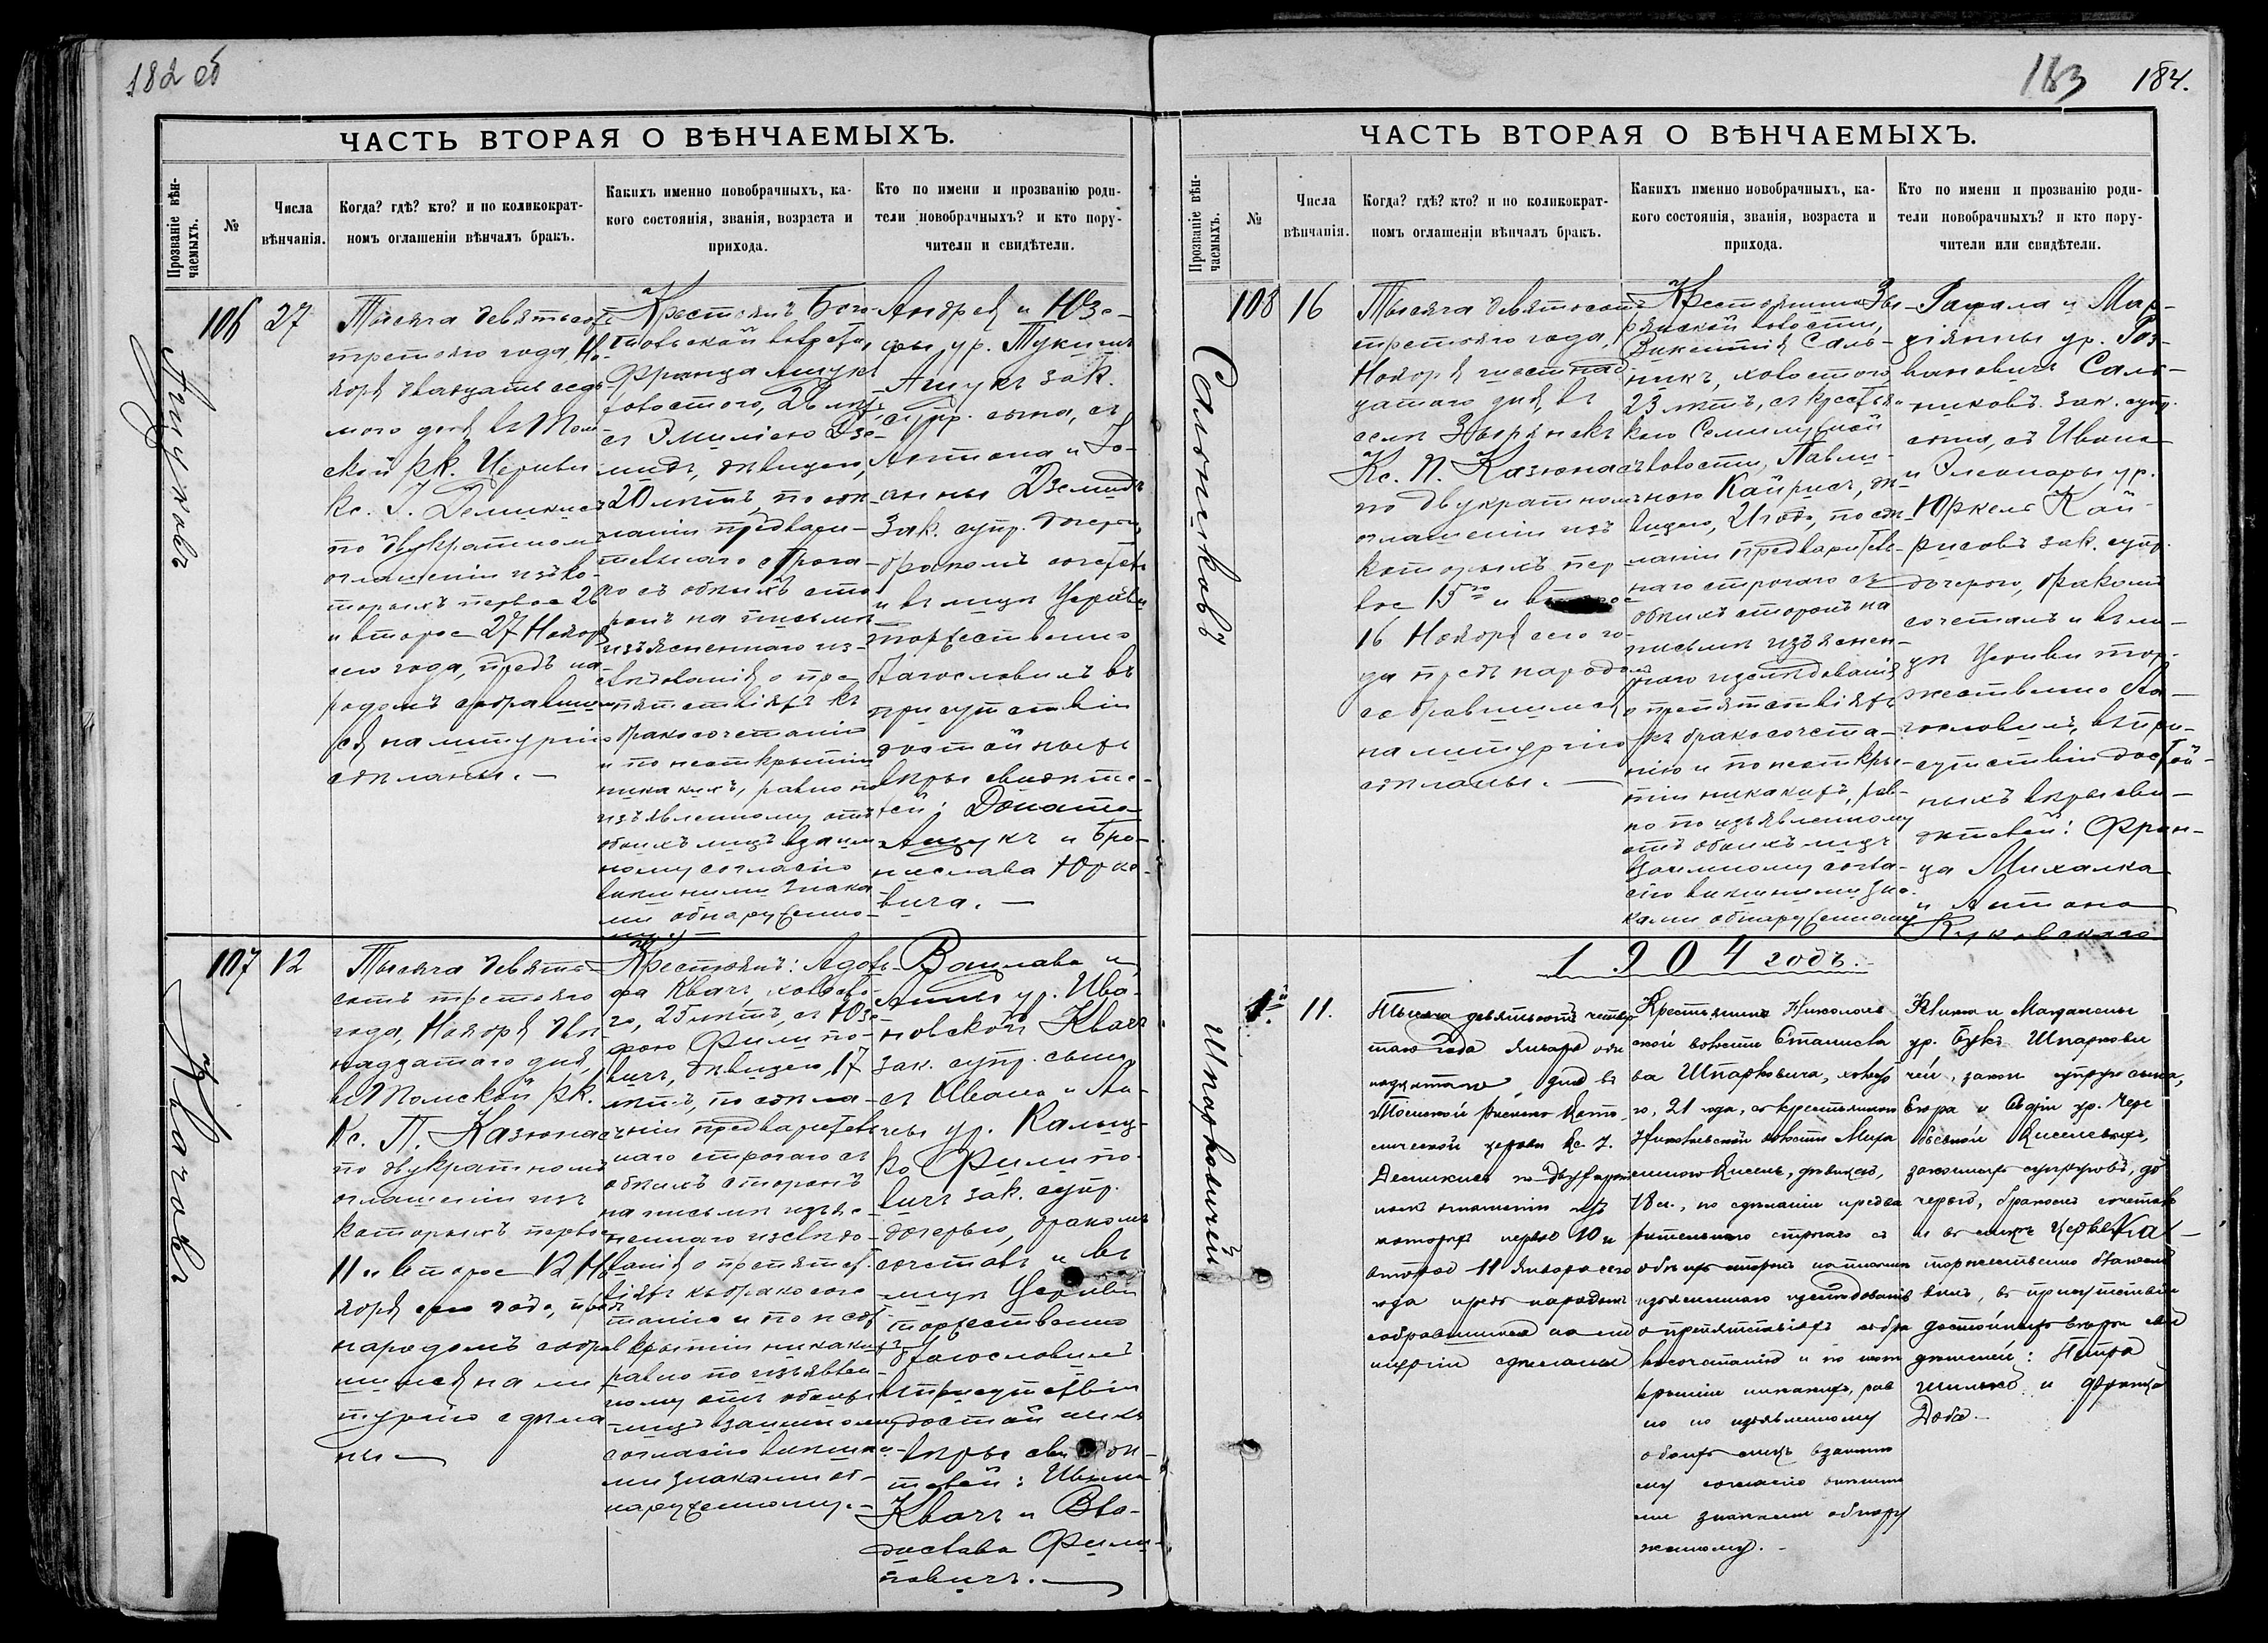 182 об
ЧАСТЬ ВТОРАЯ О ВѢНЧАЕМЫХЪ.
Прозваніе вѣн-
чаемыхъ.
№
Числа
вѣнчанія.
Когда? гдѣ? кто? и по коликократ-
номъ оглашеніи вѣнчалъ бракъ.
Какихъ именно новобрачныхъ, ка-
кого состоянія, званія, возраста и
прихода.
Кто по имени и прозванію роди-
тели новобрачныхъ? и кто пору-
чители и свидѣтели.
106
27
Тысяча девятьсотъ
третьяго года, Но-
ября двадцать седь-
мого дня въ Том-
ской р.к. Церкви
Кс. І. Демикисъ
по двукратномъ
оглашеніи изъ ко-
торыхъ первое 26
и второе 27 Ноября
сего года, предъ на-
родомъ собравшим
ся на литургію
сдѣланы. —
Крестьянъ Бого-
товской волости,
Франца
холостого, 26 лѣтъ,
съ Эмиліею Дзе-
мидъ, дѣвицею,
20 лѣтъ, по сдѣ-
ланіи предвари-
тельнаго строга-
го съ обѣихъ сто
ронъ на письмѣ
изъясненнаго из-
слѣдованія о пре
пятствіяхъ къ
бракосочетанію
и по неоткрытіи
никакихъ, равно по
изъявленному отъ
обоихъ лицъ взаим
ному согласію
внѣшними знака
ми обнаруженно-
му. —
Андрея и Юзе-
фы ур.
зак.
супр. сына, съ
Антона и Іо-
анны Дземидъ
Зак. супр. дочерью
бракомъ сочеталъ
и въ лицѣ Церкви
торжественно
благословилъ въ
присутствіи
достойныхъ
вѣры свидѣте-
лей: Доната
и Бро-
нислава Юрке-
вича. —
107
12
Квачовъ
Тысяча девять-
сотъ третьяго
года, Ноября две
надцатаго дня,
въ Томской р.к.
Кс. П. Казюнасъ
по двукратномъ
оглашеніи изъ
которыхъ первое
11 и второе 12 Но
ября сего года, предъ
народомъ собрав
шимся на ли
тургію сдѣла
ны —
Крестьянъ: Адоль-
фа Квачъ, холосто-
го, 25 лѣтъ, съ Юзе
фою Филипо-
вичъ, дѣвицею, 17
лѣтъ, по сдѣла-
ніи предваритель
наго строгаго съ
обѣихъ сторонъ
на письмѣ изъяс
неннаго изслѣдо-
ванія о препятст
віяхъ къ бракосоче
танію и по неот
крытіи никакихъ
равно по изъявлен-
ному отъ обоихъ
лицъ взаимному
согласію внѣшни
ми знаками об-
наруженному. —
Вацлава и
Анны ур. Ива-
новской Квачъ
зак. супр. сына
съ Ивана и Ан-
ны ур.
Филипо-
вичъ зак. супр.
дочерью, бракомъ
сочеталъ и въ
лицѣ Церкви
торжественно
благословилъ
въ присутствіи
достойныхъ
вѣры свидѣ-
телей: Ивана
Квачъ и Вла-
дислава Фили-
повичъ. —
183
184.
ЧАСТЬ ВТОРАЯ О ВѢНЧАЕМЫХЪ.
Прозваніе вѣн-
чаемыхъ.
№
Числа
вѣнчанія.
Когда? гдѣ? кто? и по коликократ-
номъ оглашеніи вѣнчалъ бракъ.
Какихъ именно новобрачныхъ, ка-
кого состоянія, званія, возраста и
прихода.
Кто по имени и прозванію роди-
тели новобрачныхъ? и кто пору-
чители или свидѣтели.
108
16
Сальниковъ
Тысяча девятьсотъ
третьяго года,
Ноября шестнад-
цатаго дня, въ
селѣ Зырянскѣ
Кс. П. Казюнасъ
по двукратномъ
оглашеніи изъ
которыхъ пер
вое 15го и второе
16 Ноября сего го-
да предъ народомъ
собравшимся
на литургію
сдѣланы. —
Крестьянина Зы-
рянской волости,
Викентія Саль-
никъ, холостого
23 лѣтъ, съ крестьян
кою
волости, Павли-
ною Кайрисъ, дѣ-
вицею, 21 года, по сдѣ-
ланіи предваритель-
наго строгаго съ
обѣихъ сторонъ на
письмѣ изъяснен-
наго изслѣдованія
о препятствіяхъ
къ бракосочета-
нію и по неоткры-
тіи никакихъ, рав-
но по изъявленному
отъ обоихъ лицъ
взаимному согла-
сію внѣшними зна-
ками обнаруженному
Рафала и Мар-
ціянны ур. Ро-
мановичъ Саль-
никовъ зак. супр.
сына, съ Ивана
и Элеоноры ур.
Юркель Кай-
рисовъ зак. супр.
дочерью, бракомъ
сочеталъ и въ ли-
цѣ Церкви тор-
жественно бла-
гословилъ, въ при-
сутствіи достой-
ныхъ вѣры сви-
дѣтелей: Фран-
ца Михалка
и Антона
1904 годъ.
1й
11.
Шпарковичей
Тысяча девятьсотъ четвер
таго года Января оди
надцатаго дня въ
Томской Римско-Като-
лической церкви Кс. І.
Демикисъ по двукрат
номъ оглашеніи изъ
которыхъ первое 10 и
второе 11 Января сего
года предъ народомъ
собравшимся на ли
тургію сдѣланы
Крестьянина Николаев
ской волости Станисла
ва Шпарковича, холосто
го, 21 года, съ крестьянкою
Николаевской волости Мага
Кисель, дѣвицею,
18 л., по сдѣланіи предва
рительнаго строгаго съ
обѣихъ сторонъ на письмѣ
изъясненнаго изслѣдованія
о препятствіяхъ къ бра
косочетанію и по неот
крытіи никакихъ, рав
но по изъявленному
обоихъ лицъ взаимно
му согласію внѣшни
ми знаками обнару
женному. -
и Магдалены
ур. Букъ Шпаркови
чей, закон. супруг. сына,
Егора и
законныхъ супруговъ, до
черью, бракомъ сочеталъ
и въ лицѣ Церкви
торжественно благосло
вилъ, въ присутствіи
достойныхъ вѣры сви
дѣтелей: Петра
и Франца